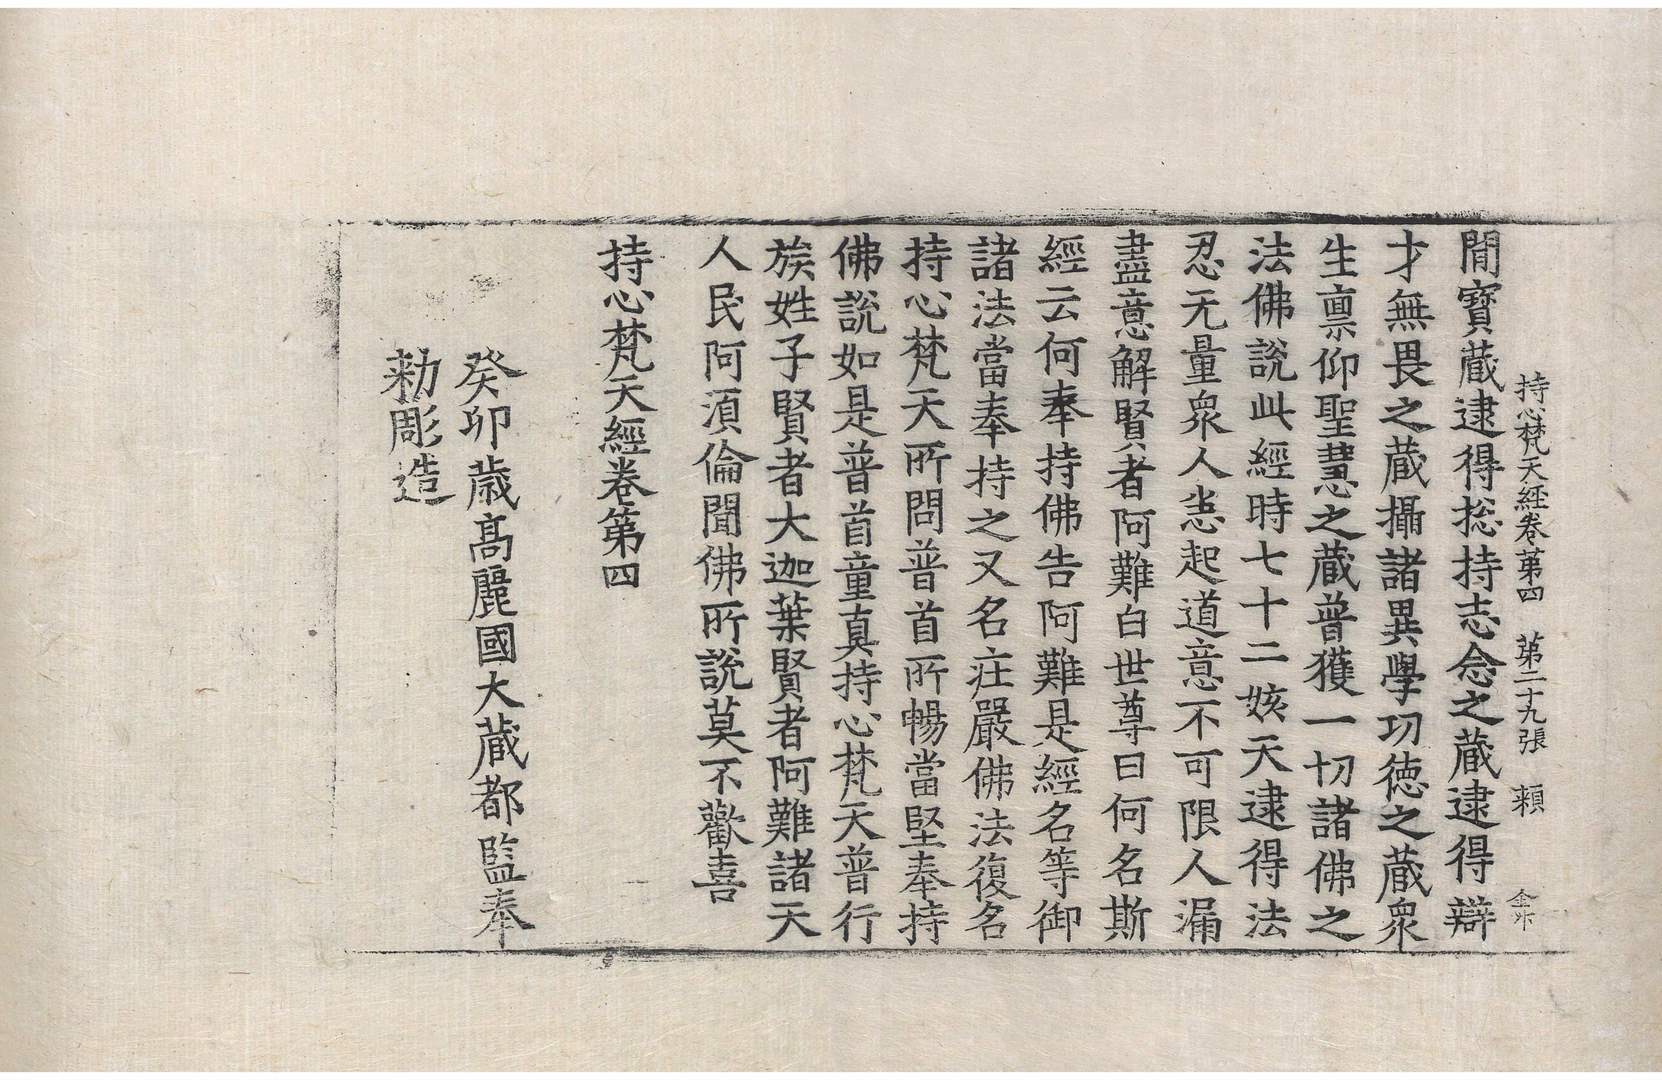 持心梵天經卷第四 第二十九張 賴
閒寶蔵逮得揔持志念之蔵逮得辯
才無畏之蔵攝諸異學功徳之蔵衆
生禀仰聖慧之蔵普獲一切諸佛之
法佛說此經時七十二姟天逮得法
忍无量衆人恙起道意不可限人漏
盡意解賢者阿難白世尊曰何名斯
經云何奉持佛告阿難是經名等御
諸法當奉持之又名莊嚴佛法復名
持心梵天所問普首所暢當堅奉持
佛說如是普首童真持心梵天普行
族姓子賢者大迦葉賢者阿難諸天
人民阿須倫聞佛所說莫不歡喜
持心梵天經卷第四
癸卯歲高麗國大藏都監奉
勑彫造